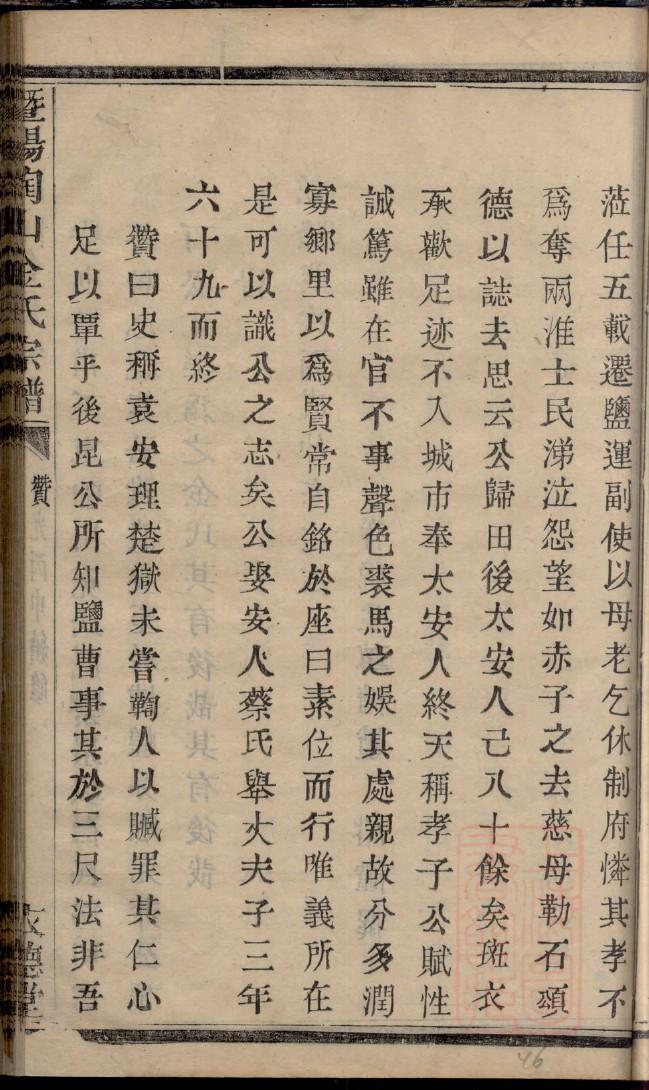 蒞任五載遷鹽運副使以母老乞休制府憐其孝不
爲奪兩淮士民涕泣怨望如赤子之去慈母勒石頌
德以誌去思云公歸田後太安人已八十餘矣斑衣
承歡足迹不入城市奉太安人終天稱孝子公賦性
誠篤雖在官不事聲色裘馬之娛其處親故分多潤
寡鄉里以爲賢常自銘於座曰素位而行唯義所在
是可以識公之志矣公娶安人蔡氏舉丈夫子三年
六十九而終
贊曰史稱袁安理楚獄未嘗鞫人以贓罪其仁心
足以覃乎後昆公所知鹽曹事其於三尺法非吾
暨陽陶山金氏宗譜
贊
友德堂
46